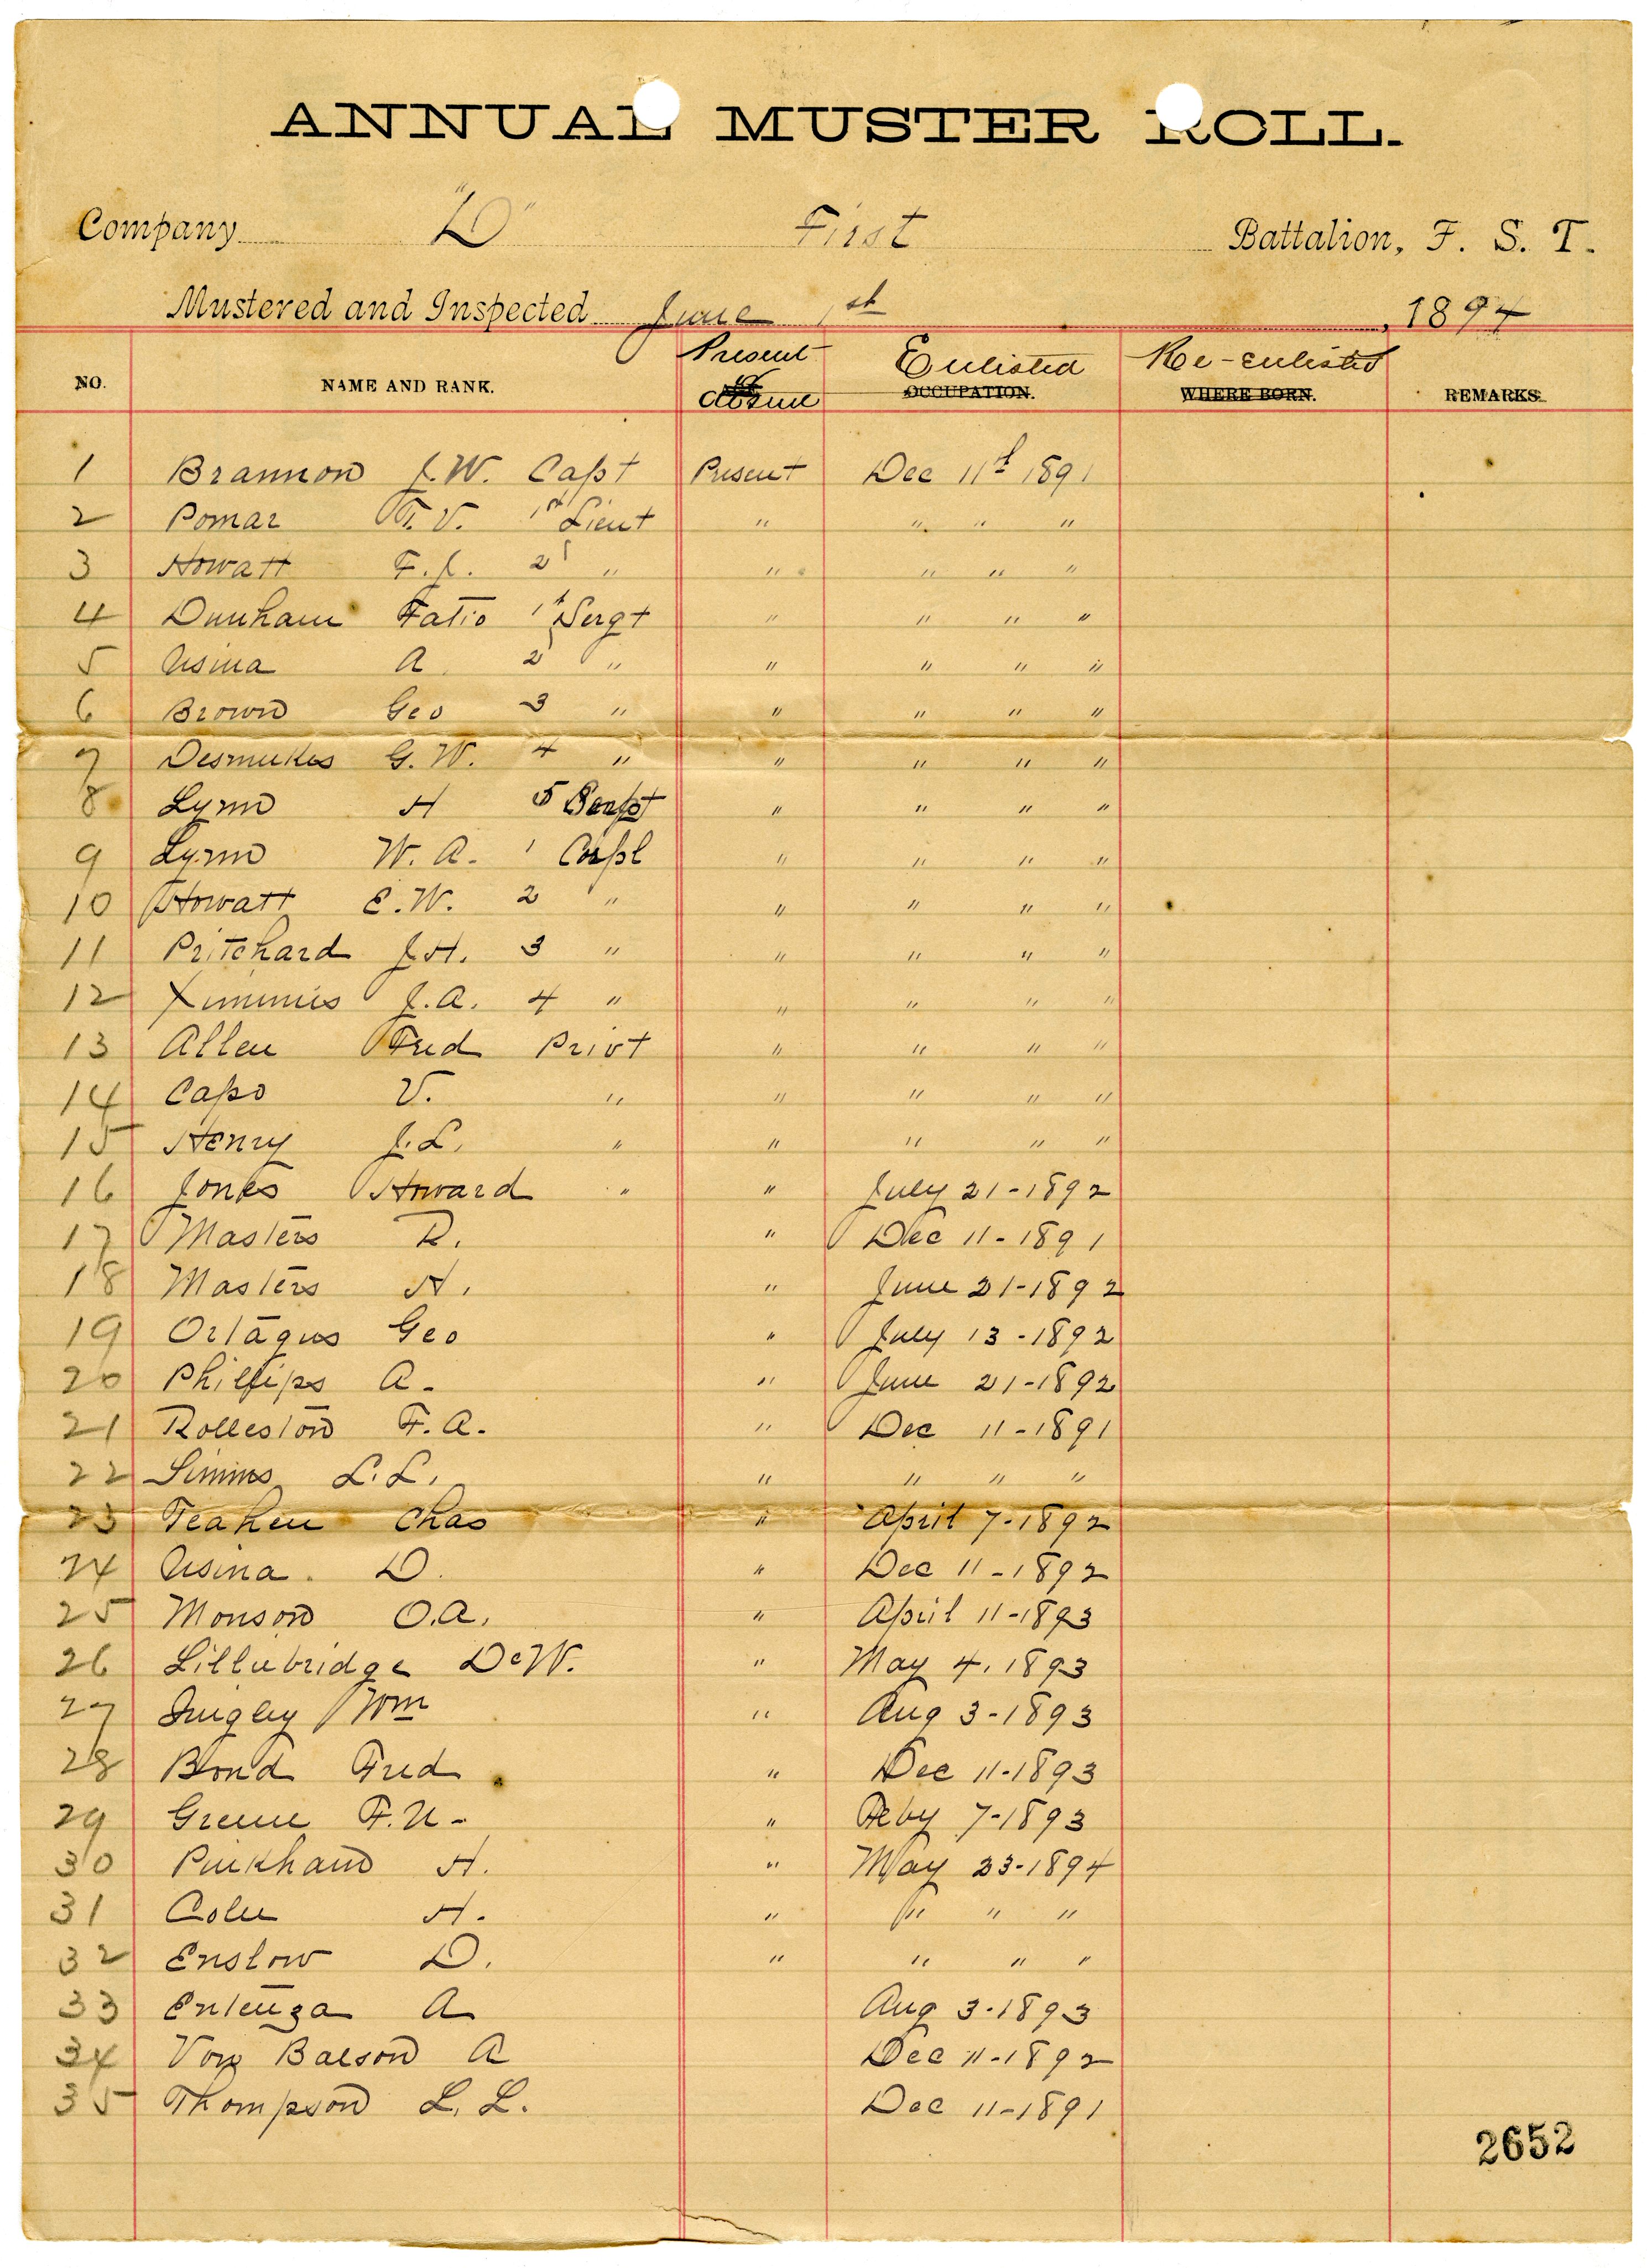 ANNUAL MUSTER ROLL.
Company "D" First Battalion, F. S. T.
Mustered and Inspected June 1st, 1894
NO. NAME AND RANK. Present Absent Enlisted OCCUPATION. Re-enlisted WHERE BORN. REMARKS.
1 Brannon J.W. Capt Present Dec 11th 1891
2 Pomar F.V. 1st Lieut " " " "
3 Howatt F.J. 2d " " " " "
4 Dunham Fatio 1st Sergt " " " "
5 Usina A. 2 " " " " "
6 Brown Geo 3 " " " " "
7 Desmukes G.W. 4 " " " " "
8 Lynn H 5 " " " "
9 Lynn W.A. 1 Corpl " " " "
10 Howatt E.W. 2 " " " " "
11 Pritchard J.H. 3 " " " " "
12 Ximinies J.A. 4 " " " " "
13 Allen Fred Privt " " " "
14 Capo V. " " " " "
15 Henry J.L. " " " " "
16 Jones Howard " " July 21-1892
17 Masters R. " Dec 11-1891
18 Masters H. " June 21-1892
19 Ortagus Geo " July 13-1892
20 Phillips A- " June 21-1892
21 Rolleston F.A. " Dec 11-1891
22 Simms L.L. " " " "
23 Teahen Chas " April 7-1892
24 Usina. D. " Dec 11-1892
25 Monson O.A. " April 11-1893
26 Lillibridge DeW. " May 4, 1893
27 Quigley Wm " Aug 3-1893
28 Bond Fred " Dec 11-1893
29 Greene F.N- " Feby 7-1893
30 Pinkham H. " May 23-1894
31 Colee H. " " " "
32 Enslow D. " " " "
33 Entenza A Aug 3-1893
34 Von Balson A Dec 11-1892
35 Thompson L.L. Dec 11-1891
2652